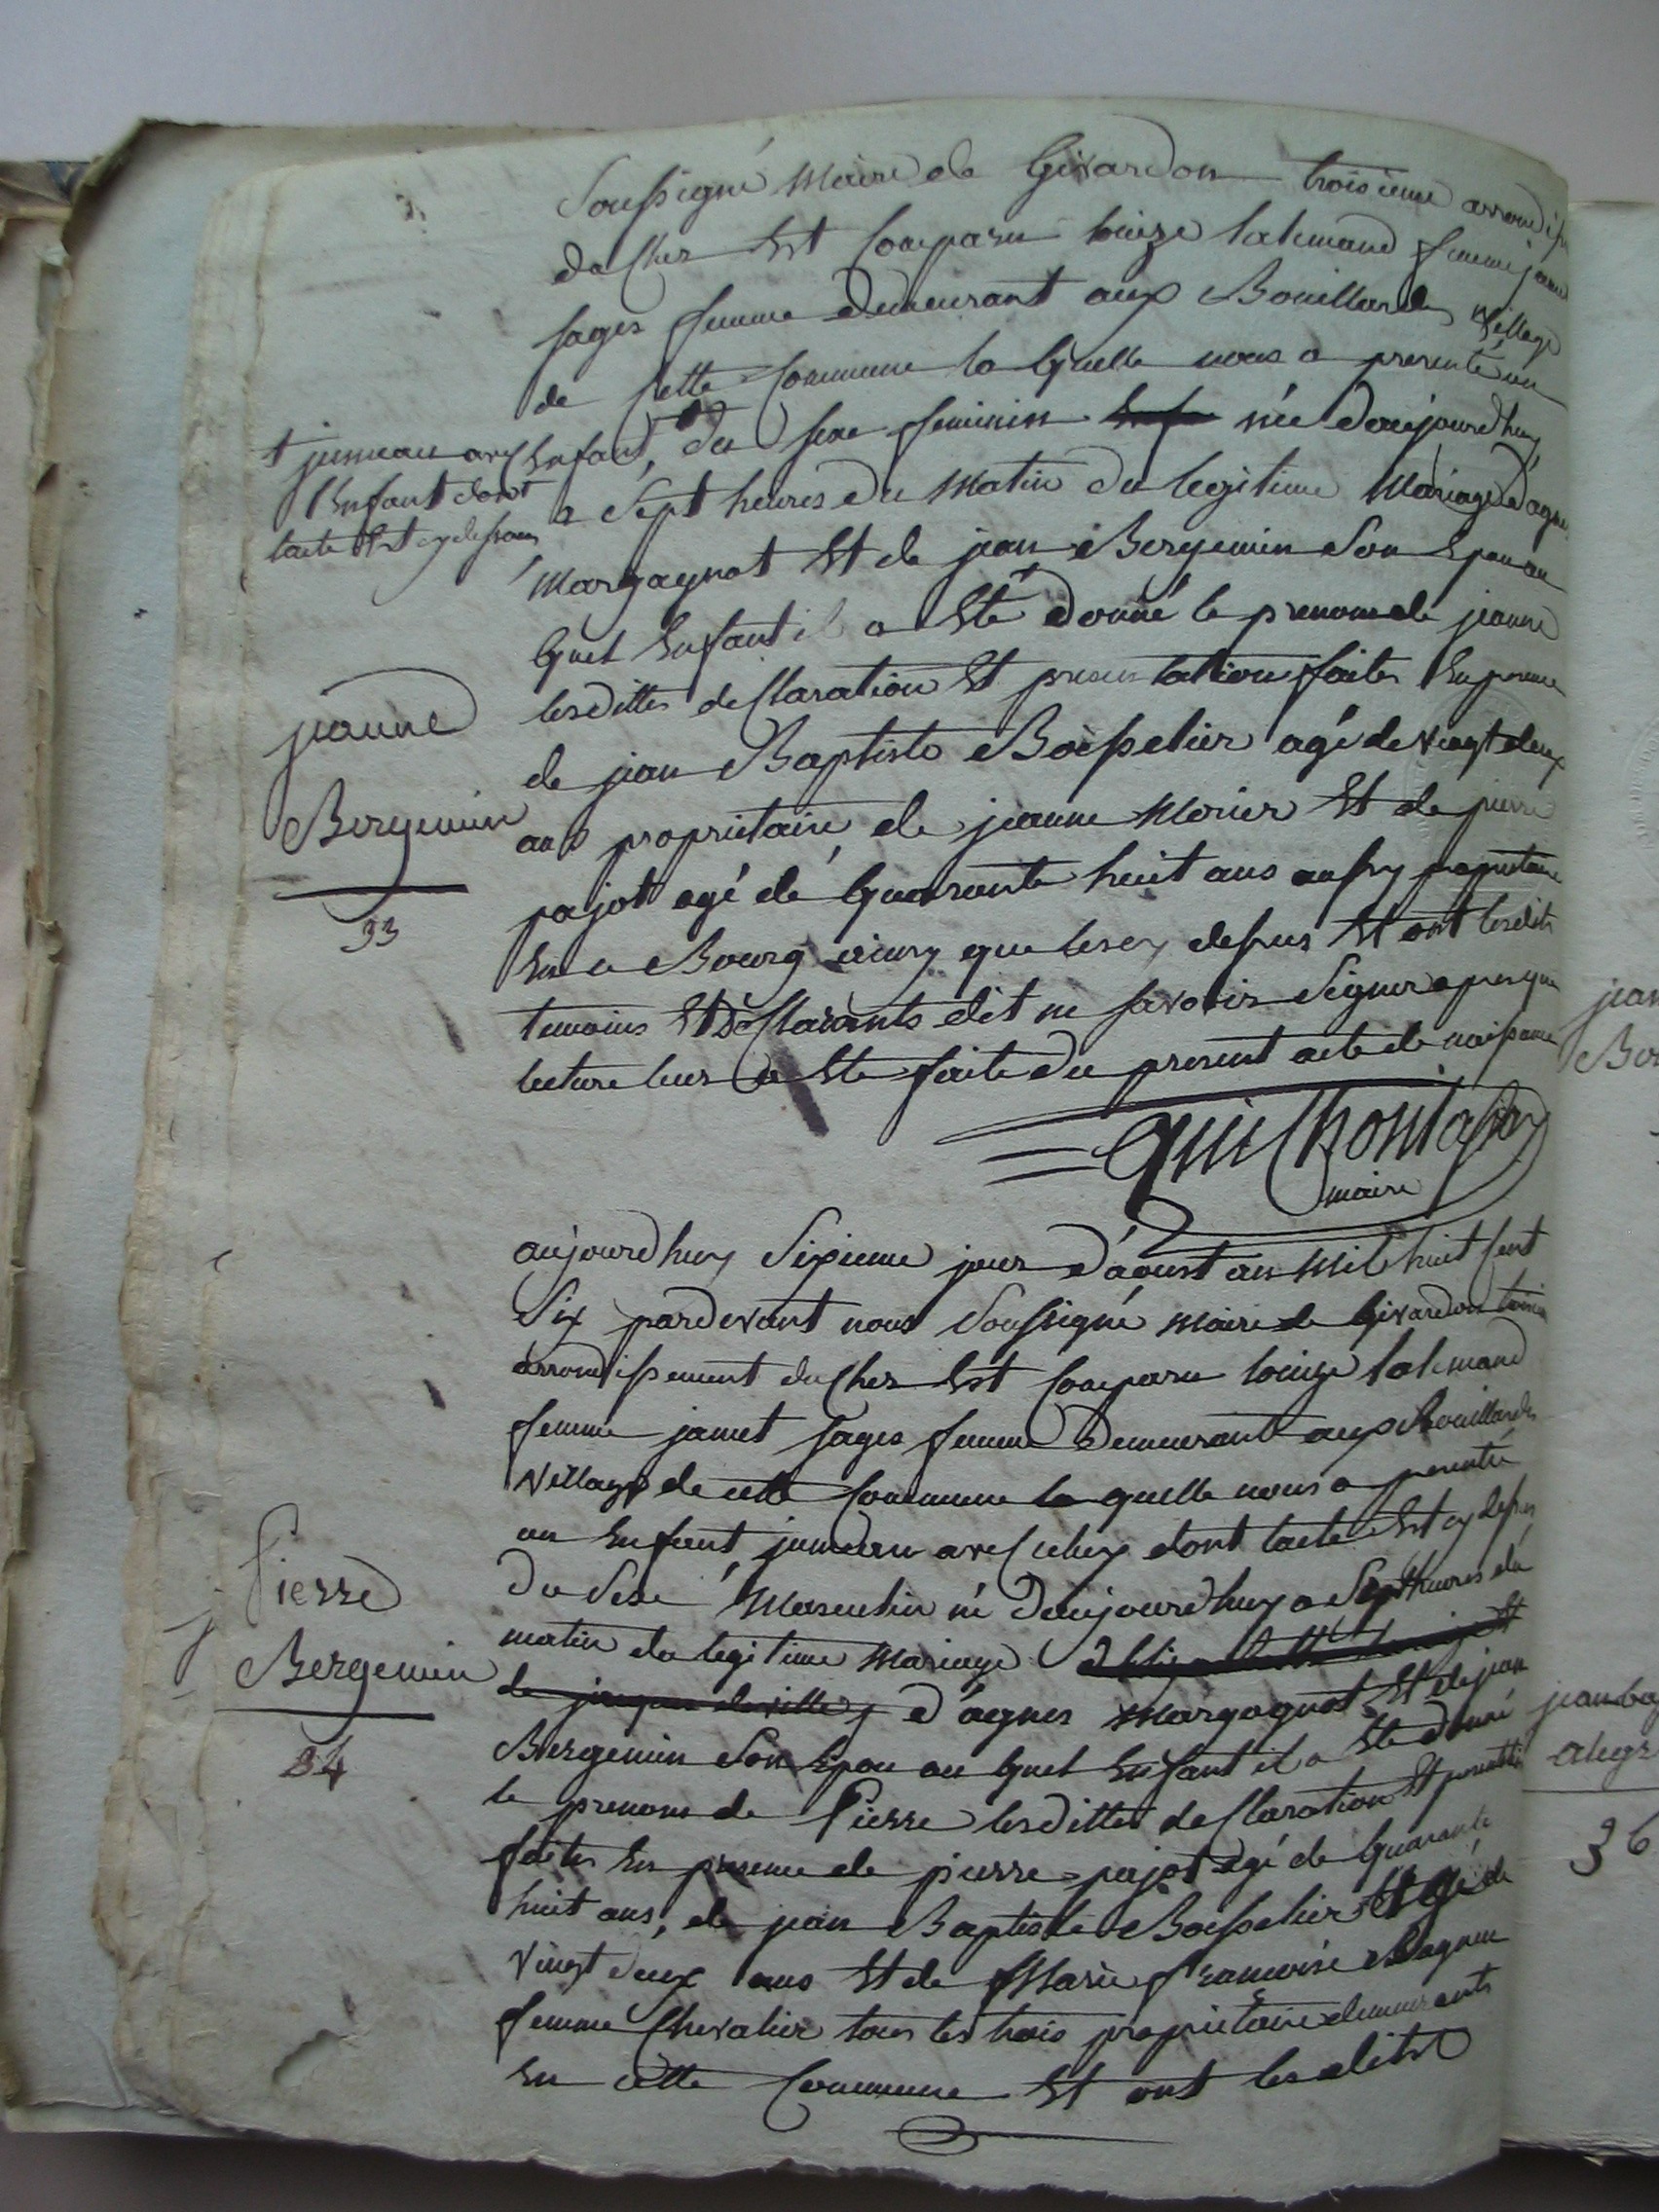 soussigné maire de Givardon troisieme arrondiss
du Cher Est Comparu louize lalemand femme jam
sages femme demeurant aux Bouillards village
de Cette Commune la quelle nous a presenté un
Enfant, † du sexe feminin née d'aujourdhuy
† jumeau avec
l'Enfant dont
lacte Est cy dessous
a sept heures du matin du legitime Mariage d'agne
Margagnot Et de jean Bergemin son Epou au
quel Enfant il a Eté donné le prenom de jeanne
lesdittes declaration Et presentation faites En presence
de jean Baptiste Boisselier agé de vingt deux
ans proprietaire, de jeanne Morier Et de pierre
pajot agé de quarante huit ans aussy proprietaire
En ce Bourg que les cy dessus Et ont lesdits
temoins Et Declarants dit ne savoir signer apres que
lecture leur a Ete faite du present acte de naissance
maire
jeanne
Bergemin
33
aujourdhuy sixieme jour d'aoust an mil huit Cent
six pardevant nous soussigné maire de Givardon troisieme
arrondissement du Cher Est Comparu louize lalemand
femme jamet sages femme demeurant aux Bouillards
village de cette Commune la quelle nous a presenté
un Enfant jumeau avec celuy dont lacte Est cy dessus
du sexe masculin né d'aujourdhuy a sept heures du
matin du legitime Mariage
d'agnes Margagnot Et de jean
Bergemin son Epou au quel Enfant il a Ete donné
le prenom de Pierre lesdittes declaration Et presentation
faites En presence de pierre pajot agé de quarante
huit ans, de jean Baptiste Boisselier agé de
vingt deux ans Et de Marie francoise
femme Chevalier tous les trois proprietaire demeurants
En cette Commune Et ont lesdits
Pierre
Bergemin
34
jean
jean ba
36